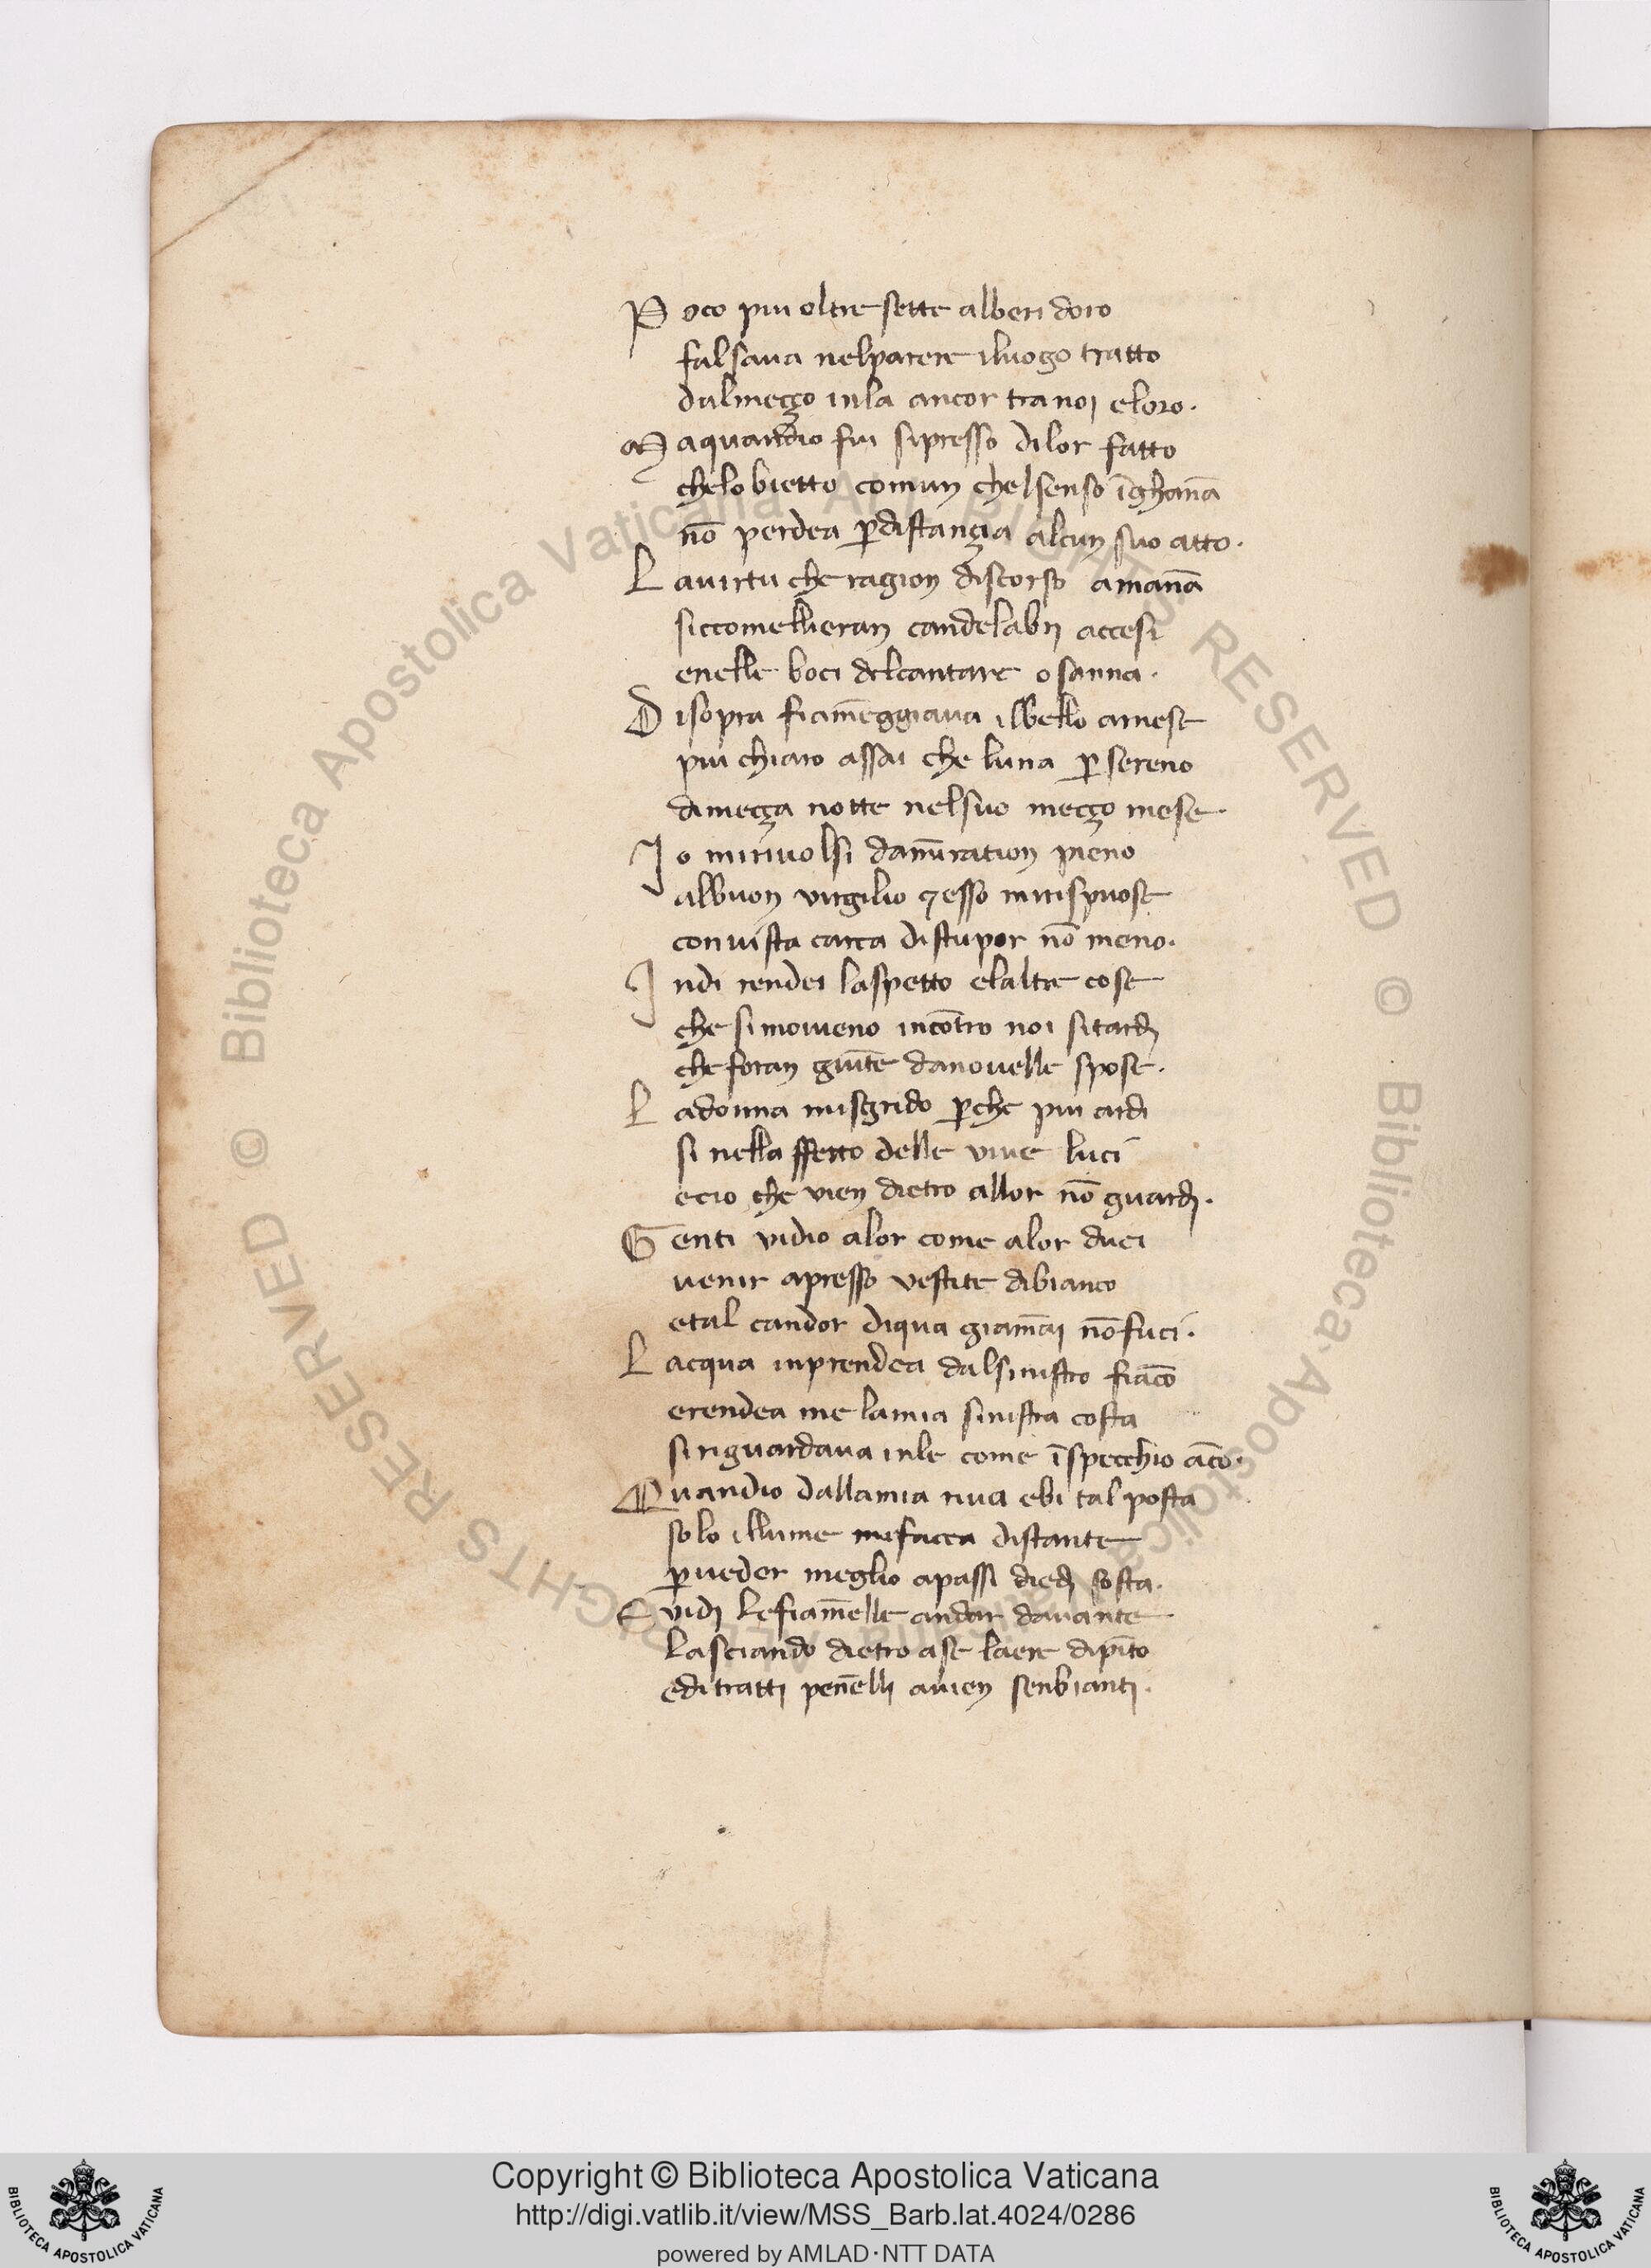 Poco piu oltre sette alberi doro
falsava nelparere iluogo tratto
dalmeçço inla ancor tra noi eloro.
Maquandio fui sipresso dilor fatto
chelobietto comun chelsenso īghanā
nō perdea p̄distançia alcun suo atto.
Lavirtu che ragion discorso amanā
siccomelleran candelabri accesi
enelle boci delcantare osanna.
Disopra fiam̄eggiava ilbello arnese
piu chiaro assai che luna p̄ sereno
dimeçça notte nelsuo meçço mese.
Io mirivolsi dam̄iration pieno
albuon virgilio ⁊ esso mirispuose
convista carca distupor nō meno.
Indi rendei laspetto elaltre cose
che simovieno incōtro noi sitardi
che foran giūte danovelle spose.
Ladonna misgrido p̄che piu ardi
si nella ffetto delle vive luci
ecio che vien dietro allor nō guardi.
Genti vidio alor come alor duci
venir apresso vestite dibianco
etal candor diqua giam̄ai nō fuci.
Lacqua inprendea dalsinistro fiāco
erendea me lamia sinistra costa
siriguardava inle come īspecchio āco.
Quandio dallamia riva ebi tal posta
solo ilfiume mifacea distante
p̄veder meglio apassi diedi sosta.
Evidi lefiam̄elle andar davante
lasciando dietro ase laere dipīto
editratti pen̄elli avien senbianti.
© Biblioteca Apostolica Vaticana. ALL RIGHTS RESERVED
© Biblioteca Apostolica Vaticana. ALL RIGHTS RESERVED
Copyright © Biblioteca Apostolica Vaticana
http://digi.vatlib.it/view/MSS_Barb.lat.4024/0286
powered by AMLAD·NTT DATA
BIBLIOTECA APOSTOLICA VATICANA
BIBLIOTECA APOSTOLICA VATICANA